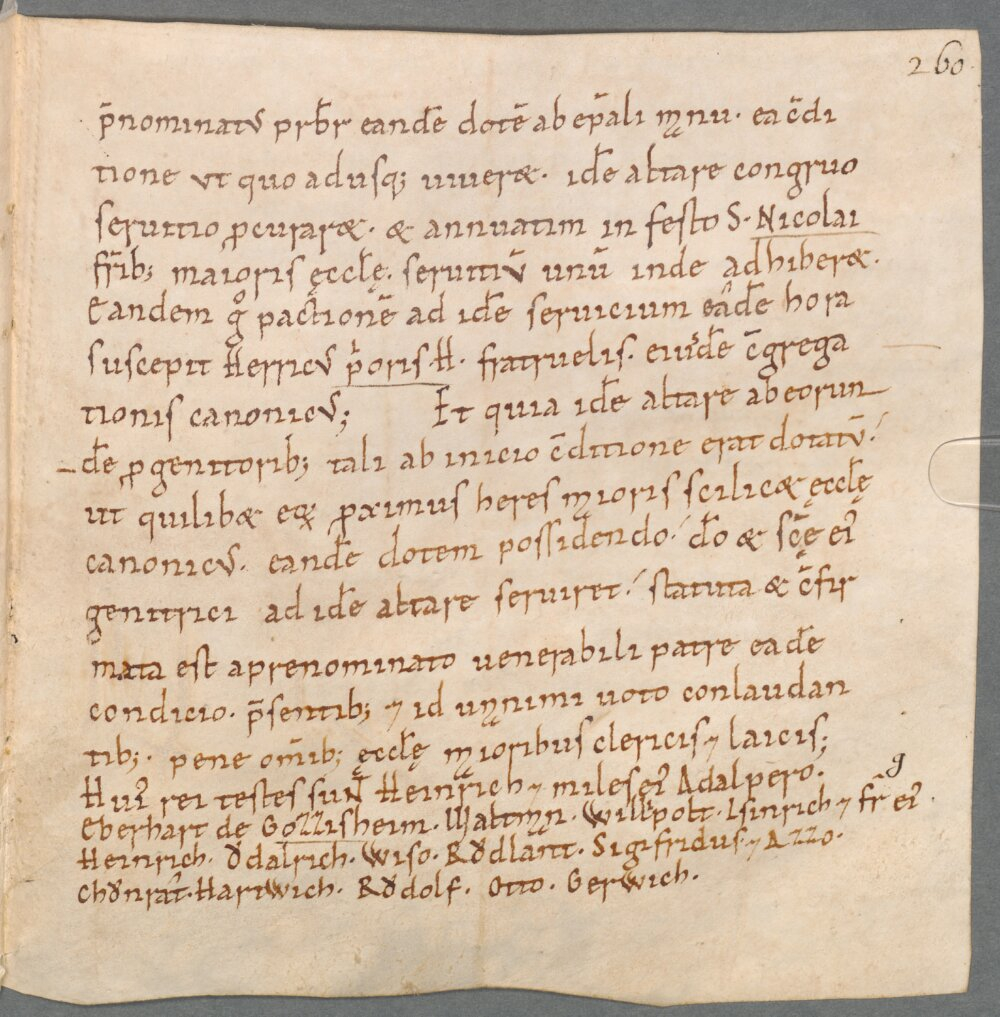 260
p̄nominatꝰ prb̄r eandē dotē ab ep̄ali manu · ea c̄di
tione ut quo adusq; uiueræ · idē altare congruo
seruitio ꝓcuraræ · & annuatim in festo S · Nicolai
fr̄ib; maioris ęccłę · seruitiū unū inde adhiberæ ·
Eandem gͦ pactionē ad idē seruicium eadē hora
suscepit Herricꝰ p̄oris · H · fratruelis · eiusdē c̄grega
tionis canonicꝰ; Et quia idē altare ab eorun
dē ꝓgenitorib; tali ab inicio c̄ditione erat dotatū ·
ut quilibæ eoꝝ ꝓximus heres maioris scilicæ ęccłę
canonicꝰ · eandē dotem possidendo · dō & scę̄ ei⁹
genitrici ad idē altare seruiret · statuta & c̄fir
mata est a prenominato uenerabili patre eadē
condicio · p̄sentib; ⁊ id unanimi uoto conlaudan
tib; · pene om̄ib; ęccłę maioribus clericis ⁊ laicis;
Hui⁹ rei testes sunt Heinrich ⁊ miles ei⁹ Adalpero ·
Eberhart de Gozzisheim · Waltman · Willipolt · Isinrich ⁊ fr̄ ei⁹ ·
g
Heinrich · Ǒdalrich · Wiso · Rǒdlant · Sigifridus ⁊ Azzo ·
Chǒnrat · Hartwich · Rǒdolf · Otto · Gerwich ·